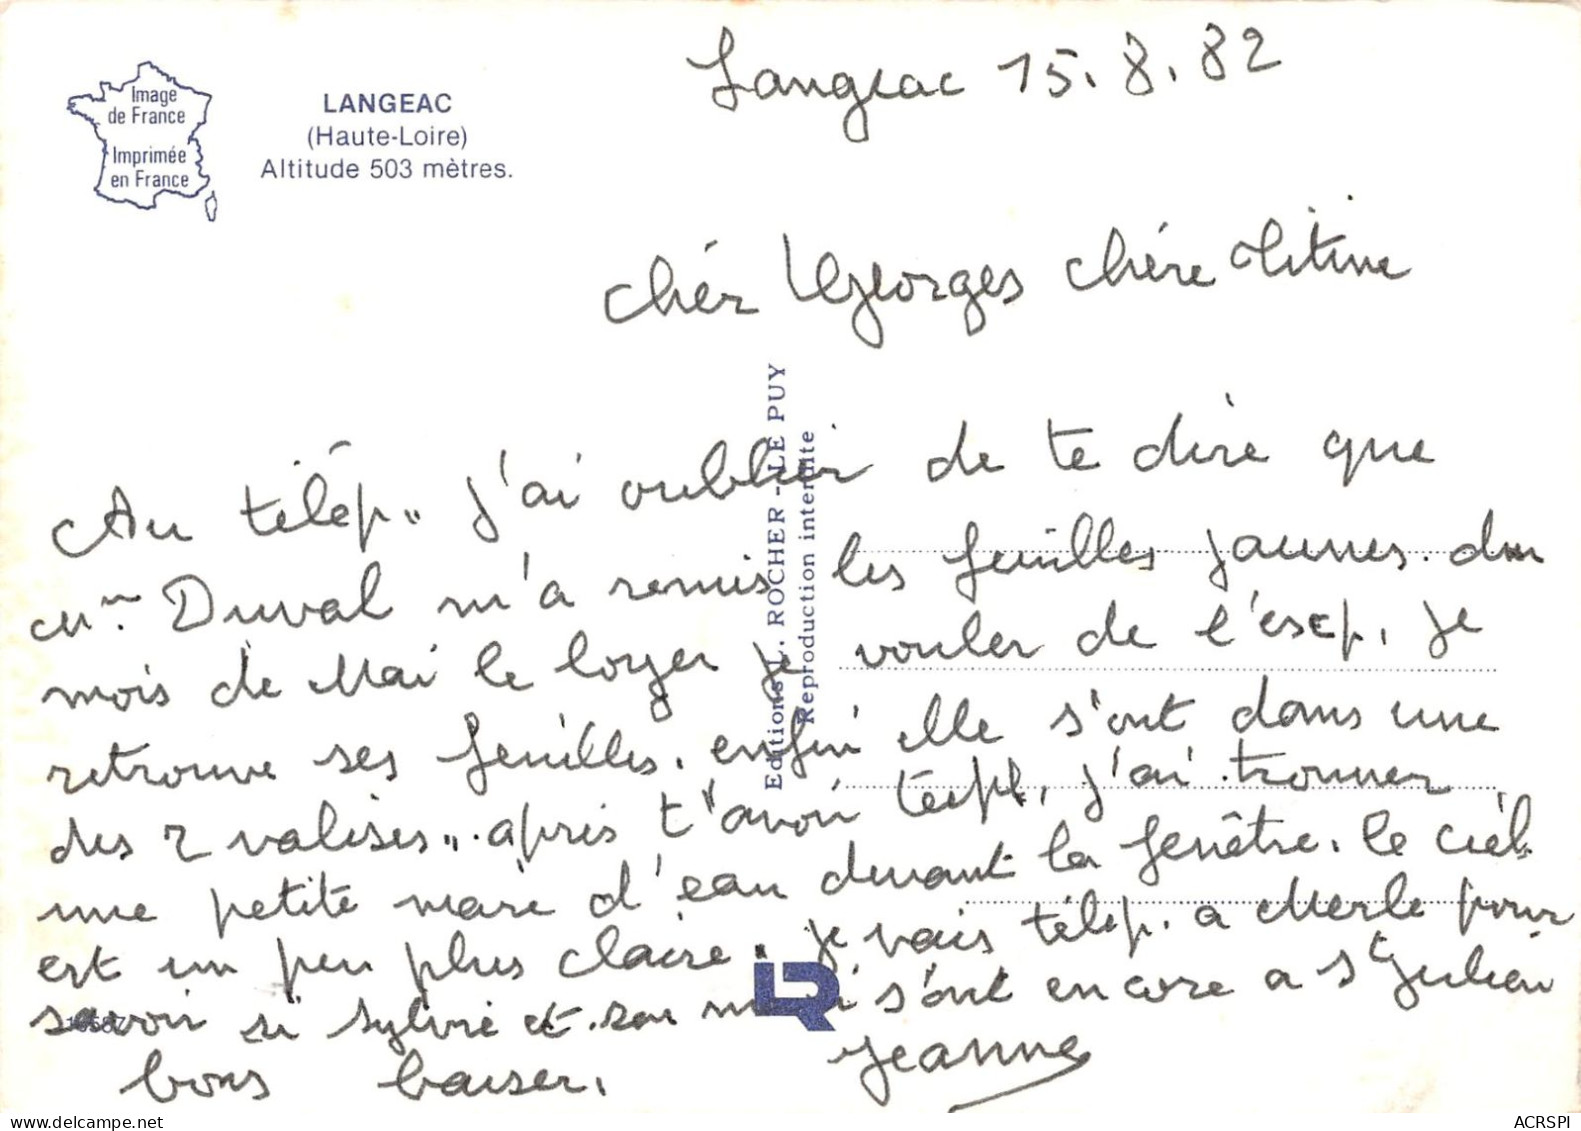 Image
de France
Imprimée
en France
LANGEAC
(Haute-Loire)
Altitude 503 mètres.
Langeac 15.8.82
chér Georges chère Titine
Au télép. j'ai oublier de te dire que
Mr Duval m'a remis les feuilles jaunes. du
mois de Mai le loyer je vouler de l'esep, je
retrouve ses feuilles. enfin elle s'ont dans une
des 2 valises. après t'avoir télépl, j'ai trouver
une petite mare d'eau devant la fenêtre. le ciel
est un peu plus claire. je vais télép. a Merle pour
savoir si Sylvie et son mari s'ont encore a St Julien
bons baiser. Jeanne
Editions L. ROCHER - LE PUY
Reproduction interdite
LR
www.delcampe.net
ACRSPI